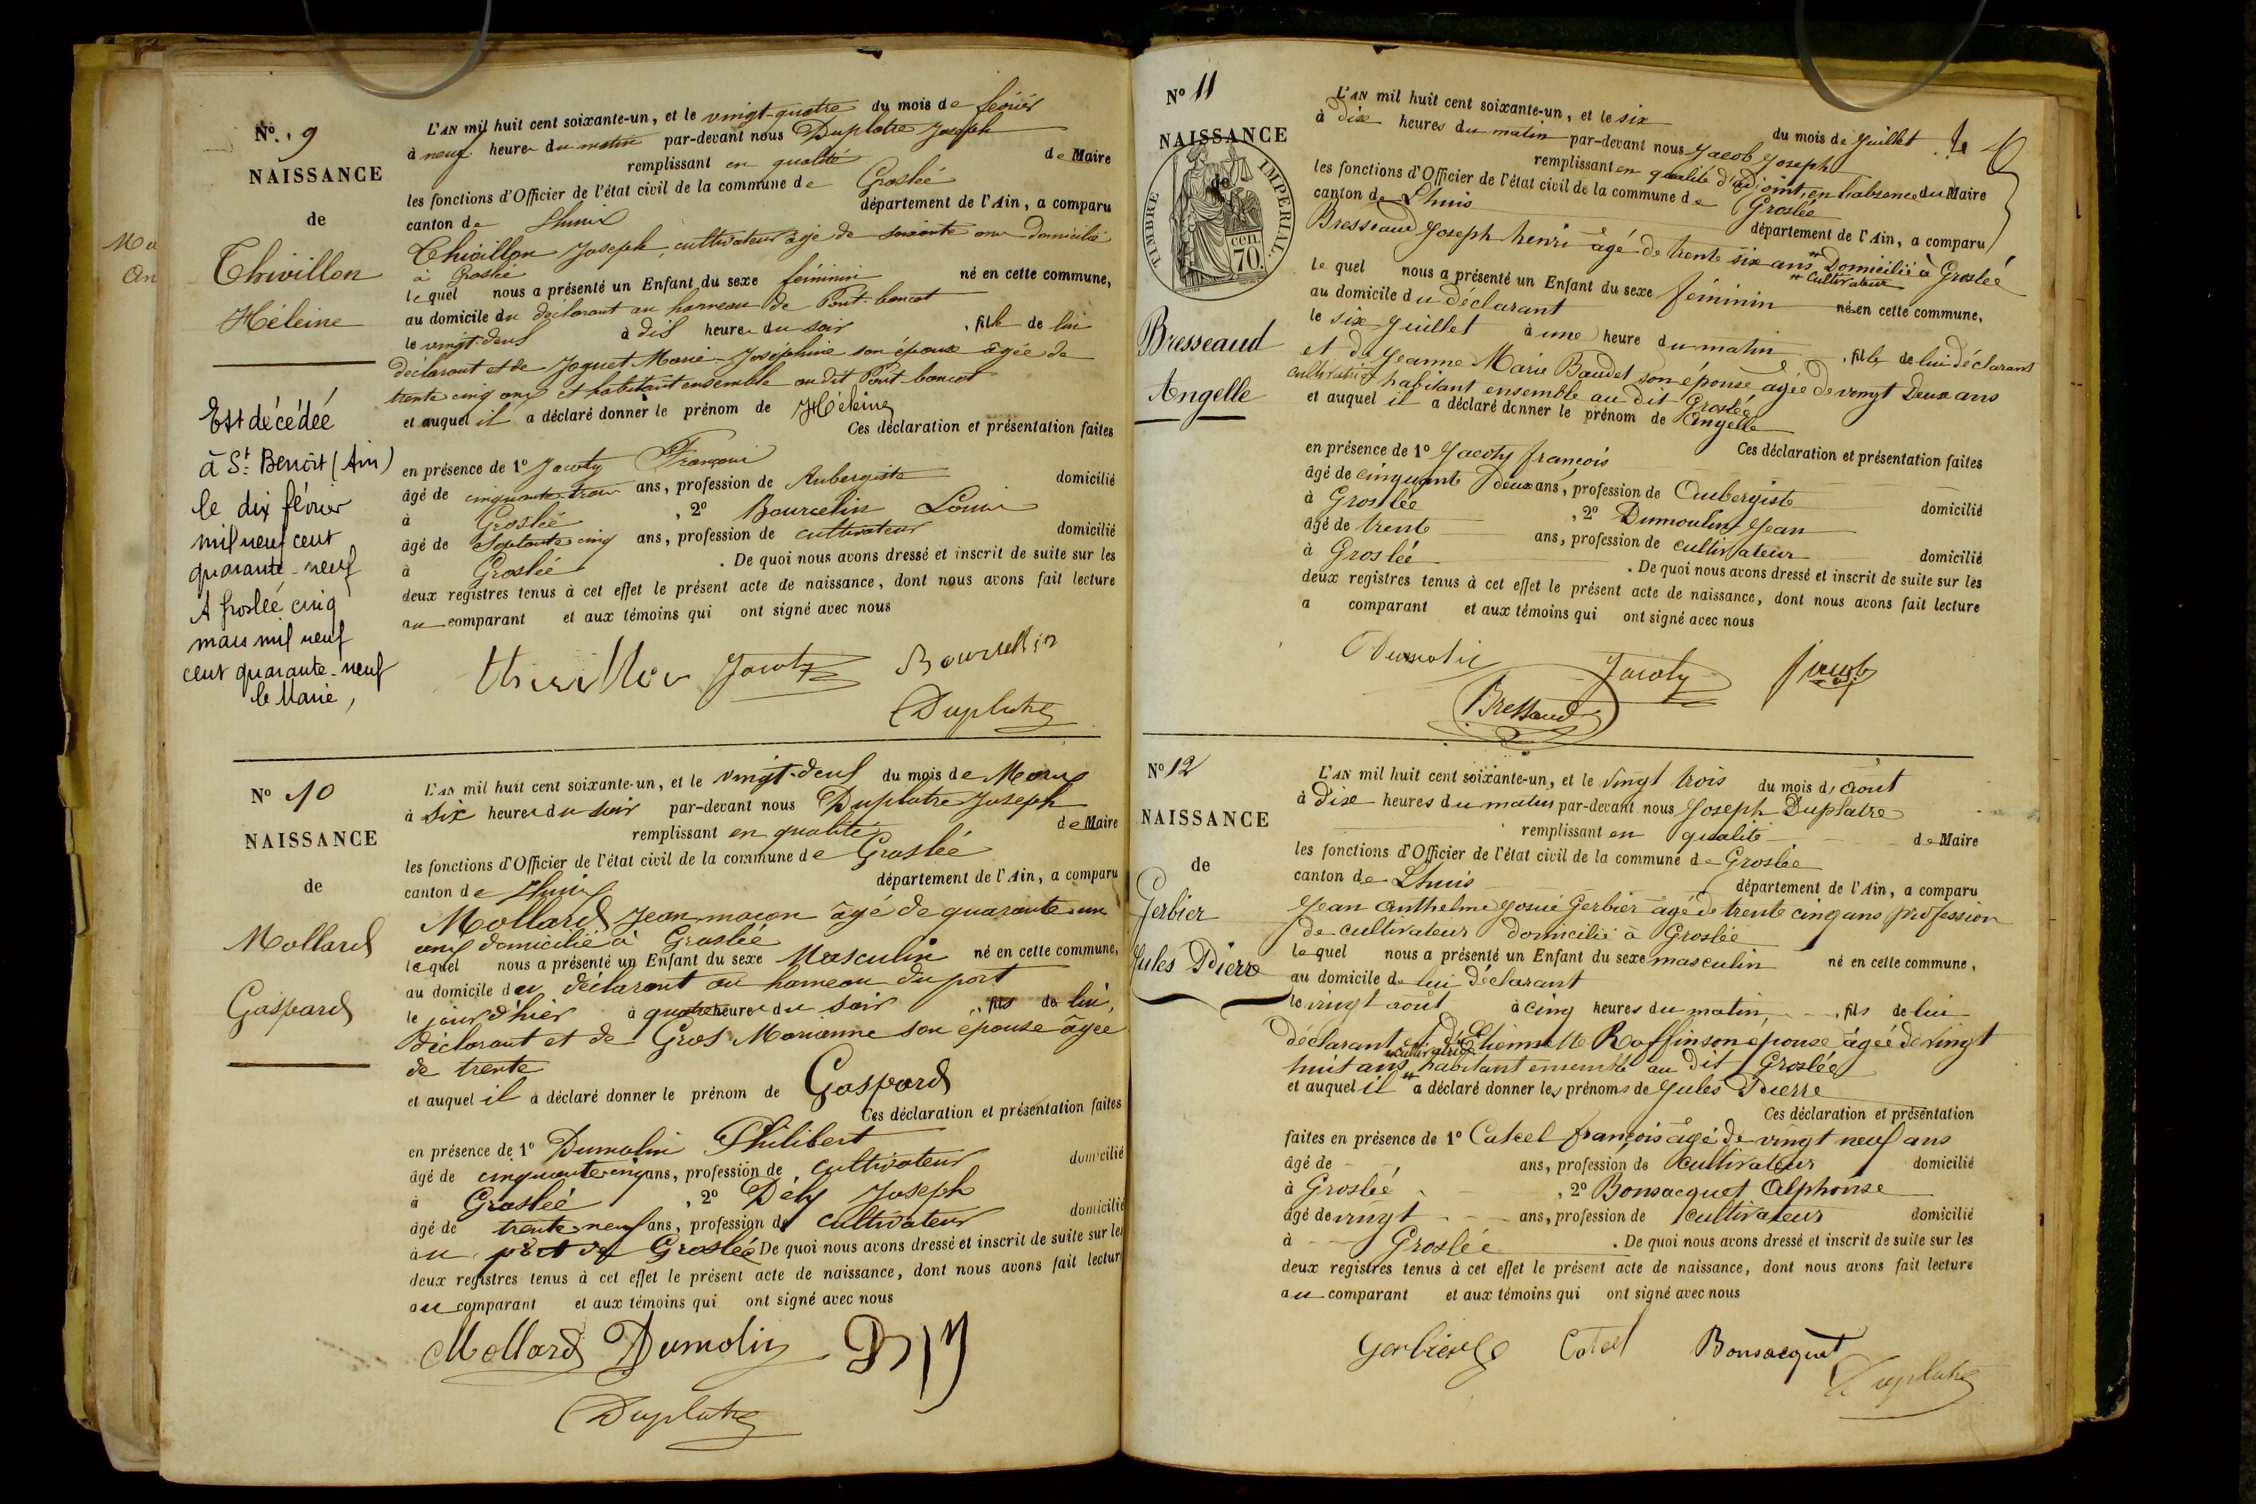 Nº. 9
NAISSANCE
de
Thivillon
Héleine
Est décédée
à St. Benoît (Ain)
le dix février
mil neuf cent
quarante-neuf
A Groslée cinq
mars mil neuf
cent quarante-neuf
le Maire,
L'AN mil huit cent soixante-un, et le vingt-quatre du mois de février
à neuf heures du matin par-devant nous Duplatre Joseph
remplissant en qualité de Maire
les fonctions d'Officier de l'état civil de la commune de Groslée
canton de Lhuis département de l'Ain, a comparu
Thivillon Joseph, cultivateur âgé de soixante ans domicilié
à Groslée
lequel nous a présenté un Enfant du sexe féminin né en cette commune,
au domicile du déclarant au hameau de Pont-bancet
le vingt-deux à dix heures du soir, fille de lui
déclarant et de Joguet Marie-Joséphine son épouse âgée de
trente cinq ans et habitant ensemble au dit Pont-bancet
et auquel il a déclaré donner le prénom de Héleine
Ces déclaration et présentation faites
en présence de 1º Jacoty François
âgé de cinquante trois ans, profession de Aubergiste domicilié
à Groslée, 2º Bourcelin Louis
âgé de Septante cinq ans, profession de cultivateur domicilié
à Groslée. De quoi nous avons dressé et inscrit de suite sur les
deux registres tenus à cet effet le présent acte de naissance, dont nous avons fait lecture
au comparant et aux témoins qui ont signé avec nous
Thivillon Jacoty Bourcellin
Duplatre
Nº 10
NAISSANCE
de
Mollard
Gaspard
L'AN mil huit cent soixante-un, et le vingt-deux du mois de Mars
à six heures du soir par-devant nous Duplatre Joseph
remplissant en qualité de Maire
les fonctions d'Officier de l'état civil de la commune de Groslée
canton de Lhuis département de l'Ain, a comparu
Mollard Jean maçon âgé de quarante un
ans domicilié à Groslée
lequel nous a présenté un Enfant du sexe Masculin né en cette commune,
au domicile du déclarant au hameau du port
le jour d'hier à quatre heures du soir, fils de lui,
déclarant et de Gros Marianne son épouse âgée
de trente
et auquel il a déclaré donner le prénom de Gaspard
Ces déclaration et présentation faites
en présence de 1º Dumolin Philibert
âgé de cinquante cinq ans, profession de cultivateur domicilié
à Groslée, 2º Dély Joseph
âgé de trente neuf ans, profession de cultivateur domicilié
au port de Groslée De quoi nous avons dressé et inscrit de suite sur les
deux registres tenus à cet effet le présent acte de naissance, dont nous avons fait lecture
au comparant et aux témoins qui ont signé avec nous
Mollard Dumolin
Duplatre
Nº 11
NAISSANCE
de
TIMBRE IMPERIAL.
CEN. 70.
Bresseaud
Angelle
L'AN mil huit cent soixante-un, et le six du mois de Juillet
à dix heures du matin par-devant nous Jacob Joseph
remplissant en qualité d'adjoint, en l'absence du Maire
les fonctions d'Officier de l'état civil de la commune de Groslée
canton de Lhuis département de l'Ain, a comparu
Bresseaud Joseph henri âgé de trente six ans Domicilié à Groslée
cultivateur
lequel nous a présenté un Enfant du sexe féminin né en cette commune,
au domicile du déclarant
le six Juillet à une heure du matin, fille de lui déclarant
et de Jeanne Marie Baudet son épouse âgée de vingt deux ans
cultivatrice habitant ensemble au dit Groslée
et auquel il a déclaré donner le prénom de Angelle
Ces déclaration et présentation faites
en présence de 1º Jacoty françois
âgé de cinquante deux ans, profession de Aubergiste domicilié
à Groslée, 2º Dumoulin Jean
âgé de trente ans, profession de cultivateur domicilié
à Groslée. De quoi nous avons dressé et inscrit de suite sur les
deux registres tenus à cet effet le présent acte de naissance, dont nous avons fait lecture
a comparant et aux témoins qui ont signé avec nous
Dumolin Jacoty Jacob
Bressaud
Nº 12
NAISSANCE
de
Gerbier
Jules Pierre
L'AN mil huit cent soixante-un, et le vingt trois du mois d'août
à dix heures du matin par-devant nous Joseph Duplatre
remplissant en qualité de Maire
les fonctions d'Officier de l'état civil de la commune de Groslée
canton de Lhuis département de l'Ain, a comparu
Jean Anthelme Josué Gerbier âgé de trente cinq ans profession
de cultivateur domicilié à Groslée
lequel nous a présenté un Enfant du sexe masculin né en cette commune,
au domicile de lui déclarant
le vingt août à cinq heures du matin, fils de lui
déclarant et d'Etiennette Roffin son épouse âgée de vingt
cultivatrice
huit ans habitant ensemble au dit Groslée
et auquel il a déclaré donner les prénoms de Jules Pierre
Ces déclaration et présentation
faites en présence de 1º Catcel françois âgé de vingt neuf ans
âgé de ans, profession de cultivateur domicilié
à Groslée, 2º Bonsacquet Alphonse
âgé de vingt ans, profession de cultivateur domicilié
à Groslée. De quoi nous avons dressé et inscrit de suite sur les
deux registres tenus à cet effet le présent acte de naissance, dont nous avons fait lecture
au comparant et aux témoins qui ont signé avec nous
Gerbier Catcel Bonsacquet
Duplatre